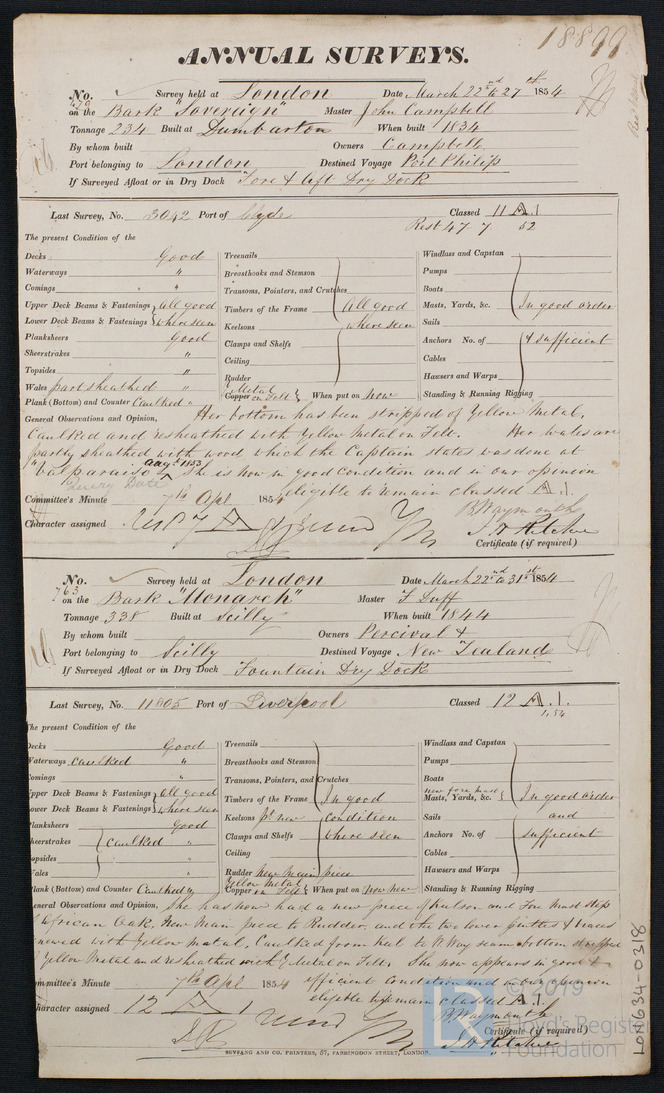 18899
ANNUAL SURVEYS.
No. 479 Survey held at London Date March 22nd to 27th 1854
on the Bark "Sovereign" Master John Campbell
Tonnage 234 Built at Dumbarton When built 1834
By whom built Owners Campbell
Port belonging to London Destined Voyage Port Philip
If Surveyed Afloat or in Dry Dock Fore & Aft Dry Dock
Last Survey, No. 3042 Port of Clyde Classed 11 A.1
Rest 47 7 52
The present Condition of the
Decks Good Treenails Windlass and Capstan
Waterways " Breasthooks and Stemson Pumps
Comings " Transoms, Pointers, and Crutches Boats
Upper Deck Beams & Fastenings all good Timbers of the Frame All good Masts, Yards, &c. In good order
Lower Deck Beams & Fastenings where seen Keelsons where seen Sails
Planksheers Good Clamps and Shelfs Anchors No. of & sufficient
Sheerstrakes " Ceiling Cables
Topsides " Rudder Hawsers and Warps
Wales part sheathed " Metal
Plank (Bottom) and Counter Caulked " Copper on Felt When put on now Standing & Running Rigging
General Observations and Opinion, Her bottom has been stripped of Yellow Metal,
Caulked and resheathed with Yellow Metal on Felt. Her wales are
partly sheathed with wood which the Captain states was done at
Valparaiso Augt 1853 She is now in good condition and in our opinion
Query Date eligible to remain classed A.1.
Committee's Minute 7th Apl 1854 B Waymouth
Character assigned J H Ritchie
Certificate (if required)
No. 763 Survey held at London Date March 22nd to 31st 1854
on the Bark "Monarch" Master F Duff
Tonnage 338 Built at Scilly When built 1844
By whom built Owners Percival &
Port belonging to Scilly Destined Voyage New Zealand
If Surveyed Afloat or in Dry Dock Fountain Dry Dock
Last Survey, No. 11805 Port of Liverpool Classed 12 A.1.
1,54
The present Condition of the
Decks Good Treenails Windlass and Capstan
Waterways caulked " Breasthooks and Stemson Pumps
Comings " Transoms, Pointers, and Crutches Boats
Upper Deck Beams & Fastenings all good Timbers of the Frame In good new fore mast Masts, Yards, &c. In good order
Lower Deck Beams & Fastenings where seen Keelsons pt new condition Sails and
Planksheers Good Clamps and Shelfs where seen Anchors No. of sufficient
Sheerstrakes caulked " Ceiling Cables
Topsides " Rudder New main piece Hawsers and Warps
Wales " Yellow Metal
Plank (Bottom) and Counter Caulked " Copper on Felt When put on now new Standing & Running Rigging
General Observations and Opinion, She has now had a new piece of Kelson and Fore Mast step
African Oak, New Main piece to Rudder, and the two lower pintles & braces
newed with Yellow Metal, Caulked from Keel to W Way seam bottom stripped
Yellow Metal and resheathed with Y Metal on Felt. She now appears in good &
efficient condition and in our opinion
Committee's Minute 7th Apl 1854 eligible to remain classed A.1.
Character assigned 12 A 1 B Waymouth
Certificate (if required)
J H Ritchie
SEYFANG AND CO. PRINTERS, 57, FARRINGDON STREET, LONDON.
LON634-0318
© 2019
Lloyd's Register
Foundation